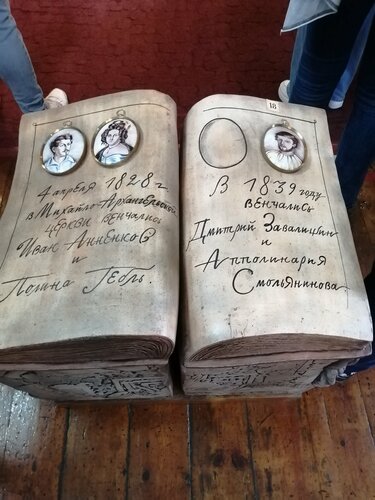 4 апреля 1828 г.
в Михайло-Архангельской
церкви венчались
Иван Анненков
и
Полина Гебль.
18
В 1839 году
венчались
Дмитрий Завалишин
и
Апполинария
Смольянинова